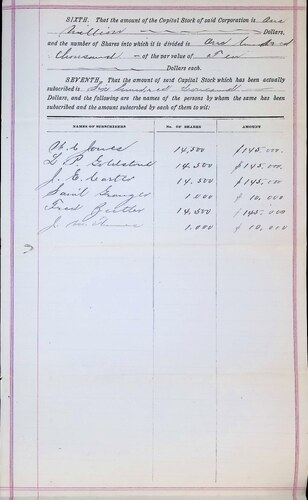 SIXTH. That the amount of the Capital Stock of said Corporation is One
Million Dollars,
and the number of Shares into which it is divided is One hundred
thousand of the par value of Ten
Dollars each.
SEVENTH, That the amount of said Capital Stock which has been actually
subscribed is Six hundred thousand
Dollars, and the following are the names of the persons by whom the same has been
subscribed and the amount subscribed by each of them to wit:
NAMES OF SUBSCRIBERS NO. OF SHARES AMOUNT
W. C. Jones 14,500 $145,000.
P. Goldstone 14.500 $145,000.
J. E. Carter 14,500 $145,000.
Granger 1000 $ 10.000
Fred Butler 14,500 $145.000
J. W. 1.000 $ 10,000